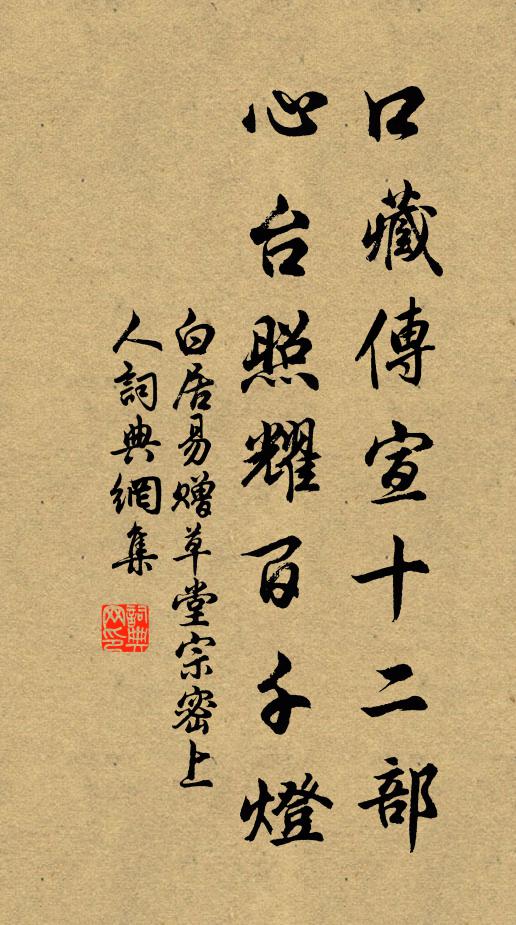 口藏傳宣十二部
心台照耀百千燈
白居易贈草堂宗密上
人詞典網集
詞典
网印